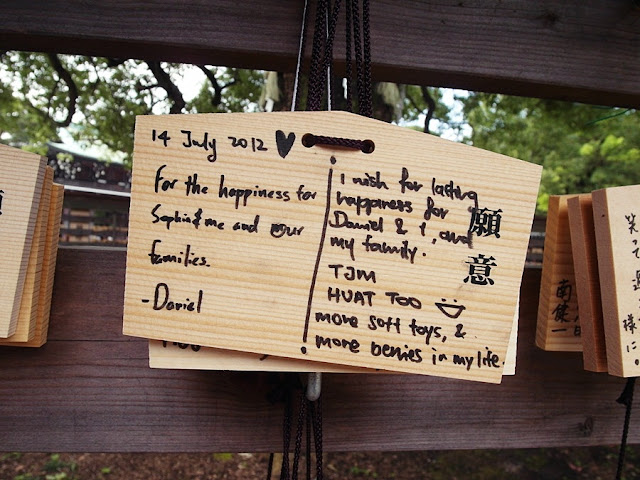 14 July 2012 ♥
For the happiness for
Sophia & me and our
families.
-Daniel
I wish for lasting
happiness for
Daniel & I, and
my family.
TJM
HUAT TOO
more soft toys, &
more in my life.
願意
南健一
笑って過
様に